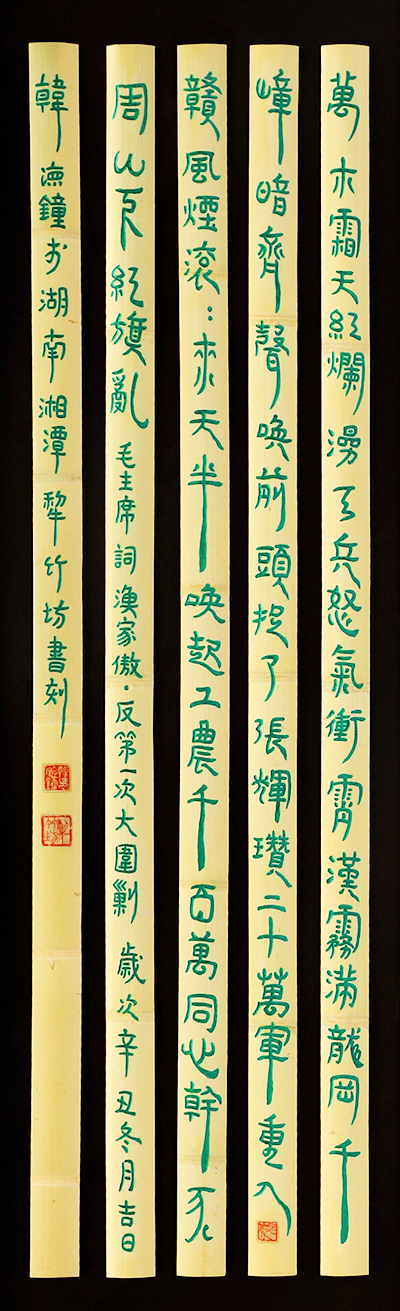 萬木霜天紅爛漫天兵怒氣衝霄漢霧滿龍岡千
嶂暗齊聲喚前頭捉了張輝瓚二十萬軍重入
贛風煙滾：來天半喚起工農千百萬同心幹不
周山下紅旗亂 毛主席詞漁家傲·反第一次大圍剿 歲次辛丑冬月吉日
韓鐘於湖南湘潭犂竹坊書刻